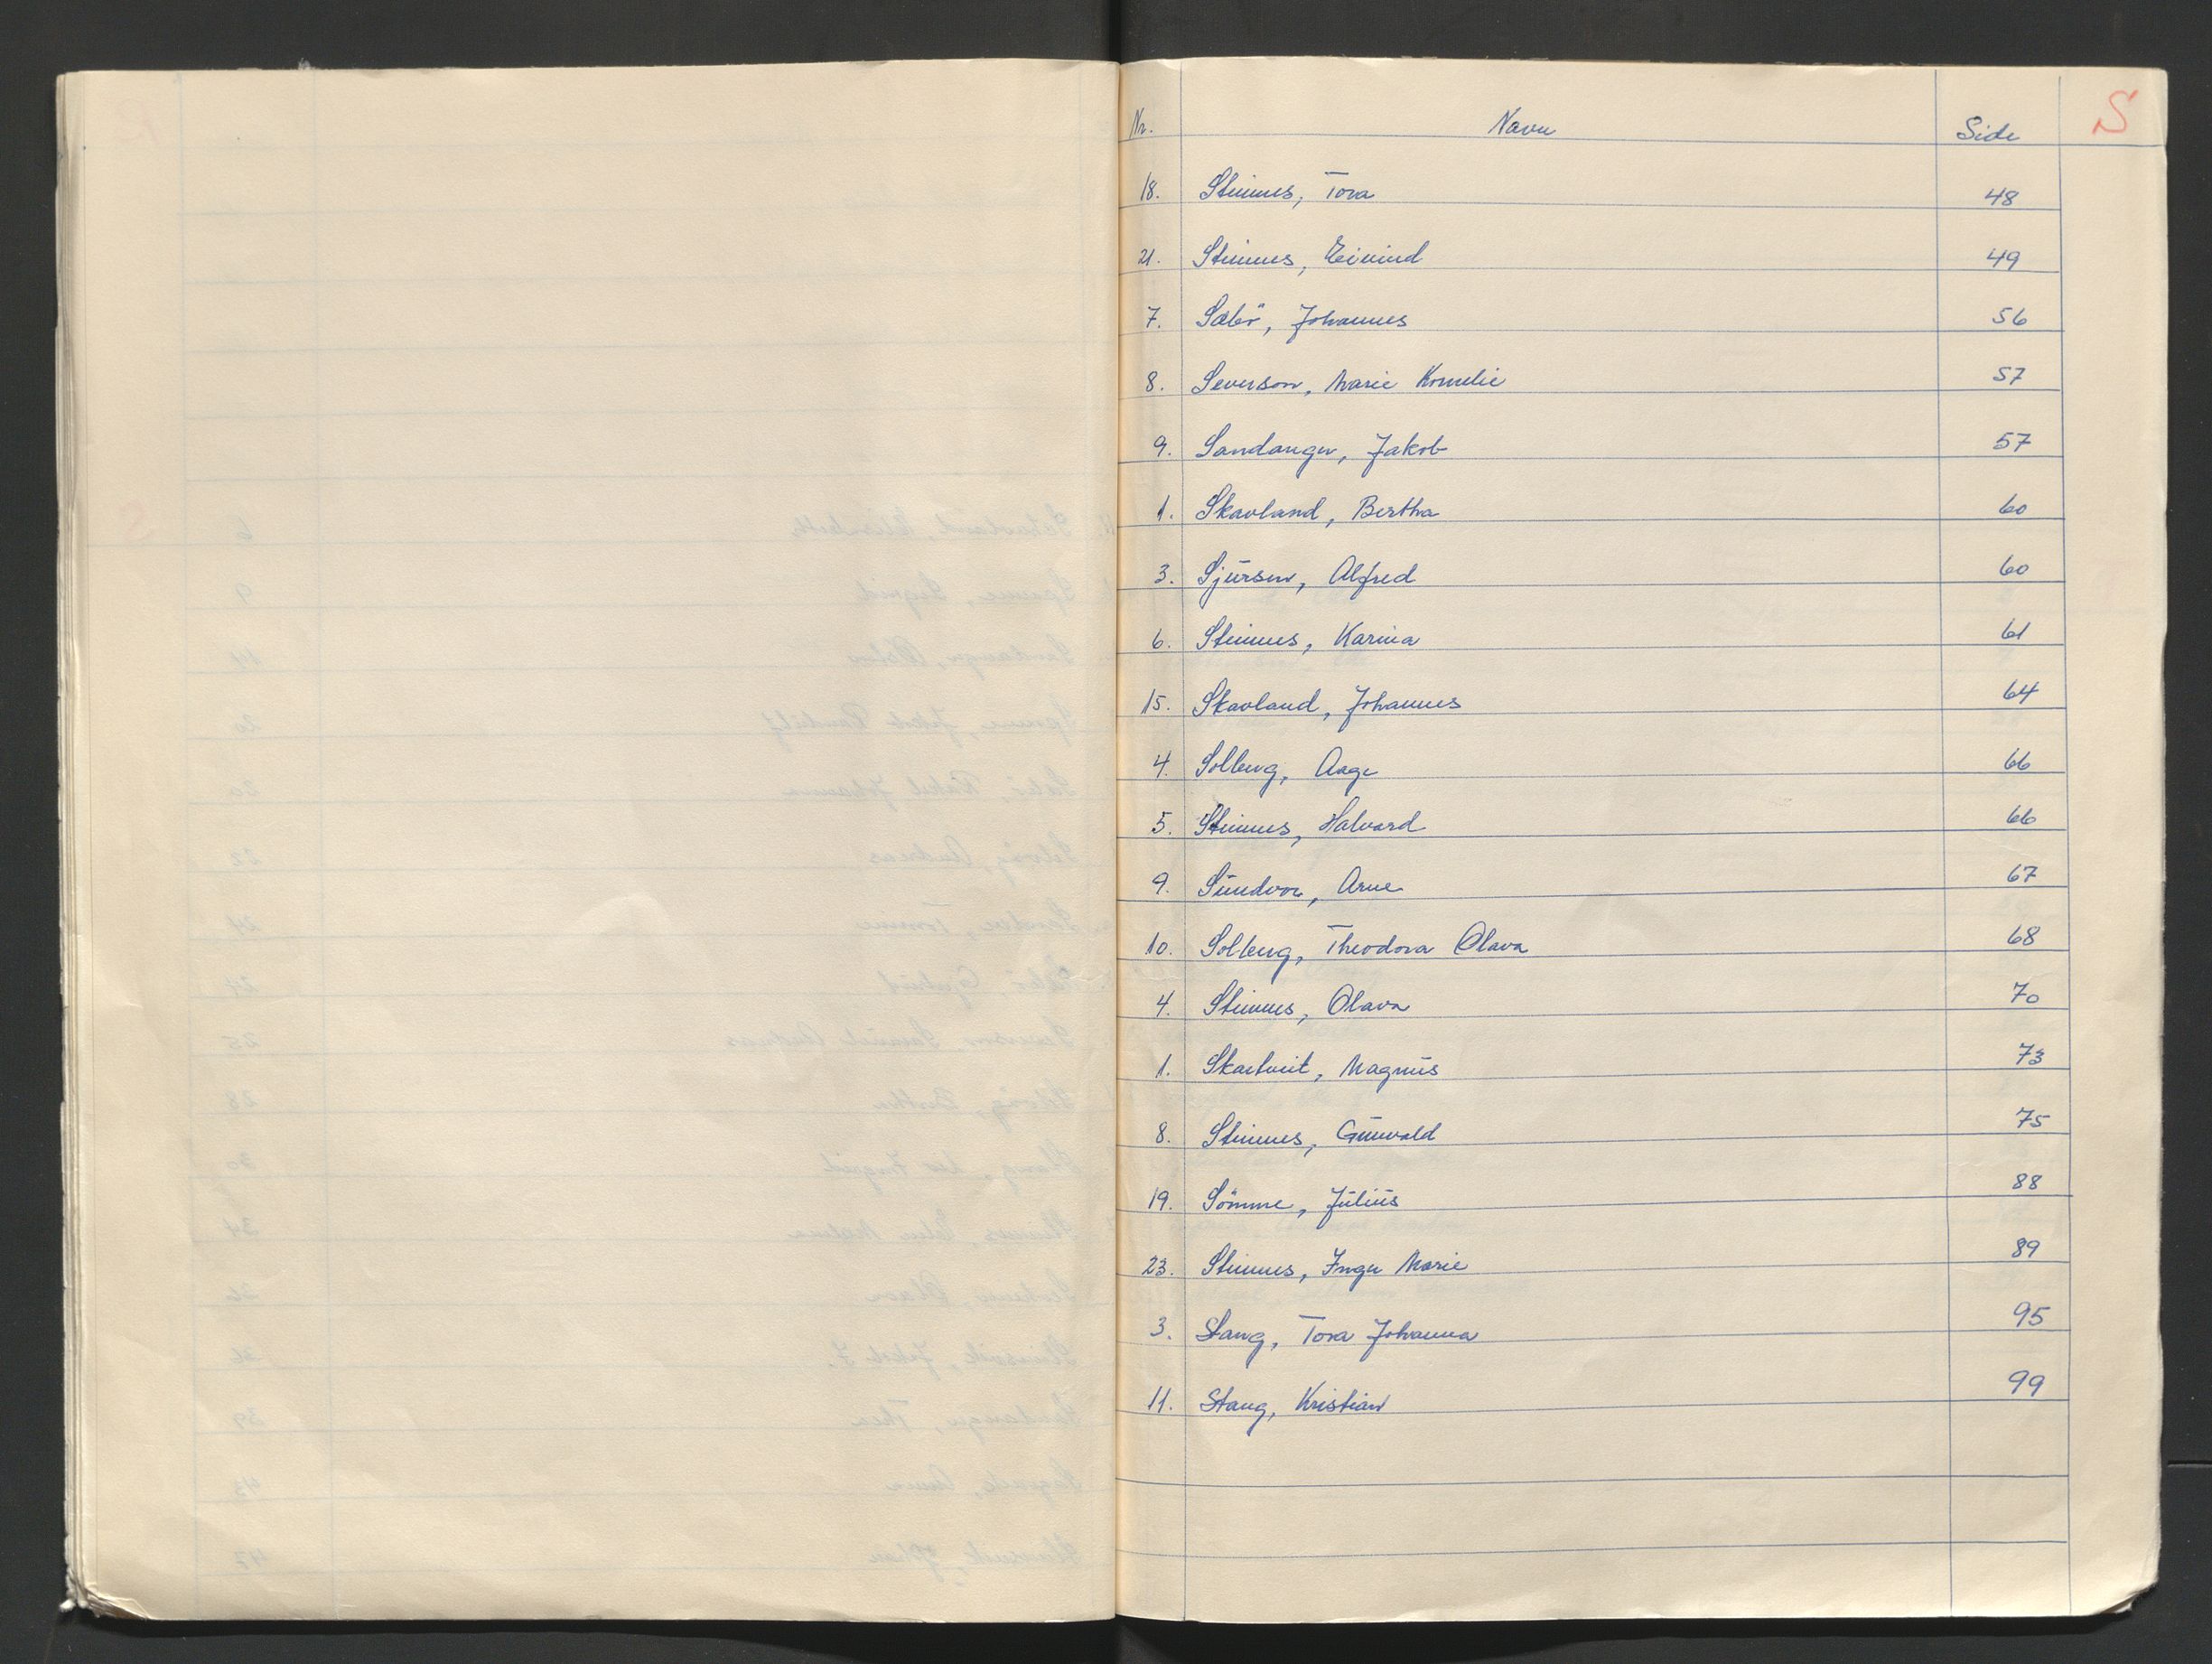 S
Nr. Navn Side
18. Stinnes, Tora 48
21. Stinnes, Eivind 49
7. Sæbö, Johannes 56
8. Severson, Marie Kornelie 57
9. Sandanger, Jakob 57
1. Skavland, Bertha 60
3. Sjursen, Alfred 60
6. Stinnes, Karina 61
15. Skavland, Johannes 64
4. Solberg, Aage 66
5. Stinnes, Halvard 66
9. Sundvor, Arne 67
10. Solberg, Theodora Olava 68
4. Stinnes, Olava 70
1. Skartveit, Magnus 73
8. Stinnes, Gunvald 75
19. Sömme, Julius 88
23. Stinnes, Inger Marie 89
3. Stang, Tora Johanna 95
11. Stang, Kristian 99